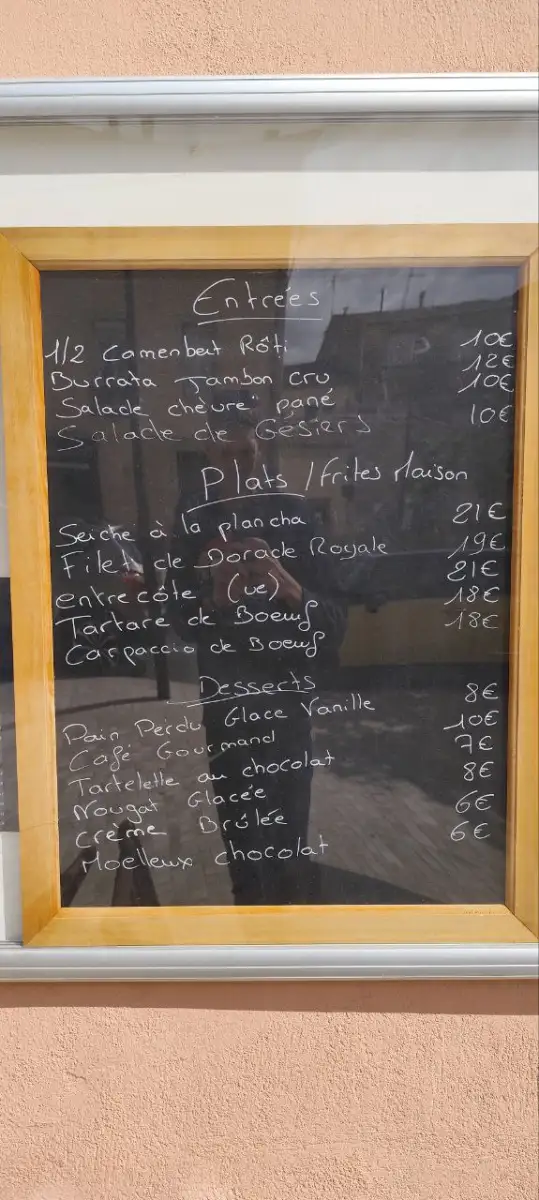 Entrées
1/2 Camenbert Rôti 10€
Burrata Jambon cru 12€
Salade chèvre pané 10€
Salade de Gésiers 10€
Plats / Frites Maison
Seiche à la plancha 21€
Filet de Dorade Royale 19€
entrecôte (ue) 21€
Tartare de Boeuf 18€
Carpaccio de Boeuf 18€
Desserts
Pain Perdu Glace Vanille 8€
Café Gourmand 10€
Tartelette au chocolat 7€
Nougat Glacée 8€
Crème Brûlée 6€
Moelleux chocolat 6€